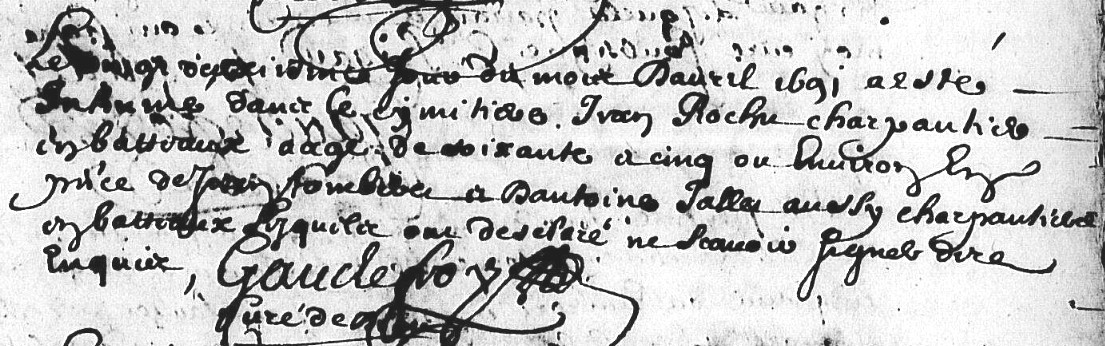 Le vingt deuxiesme Jour du mois Davril 1691 a este
Inhumé dans Le Cymitiere Jean Roche charpantier
en batteaux aagé de soixante et cinq ou Environ En
presence de Jean et Dantoine Jalla aussy charpantiers
en batteaux Lesquels ont desclaré ne scavoir signer dece
Enquis,
Gaudefroy
Curé de